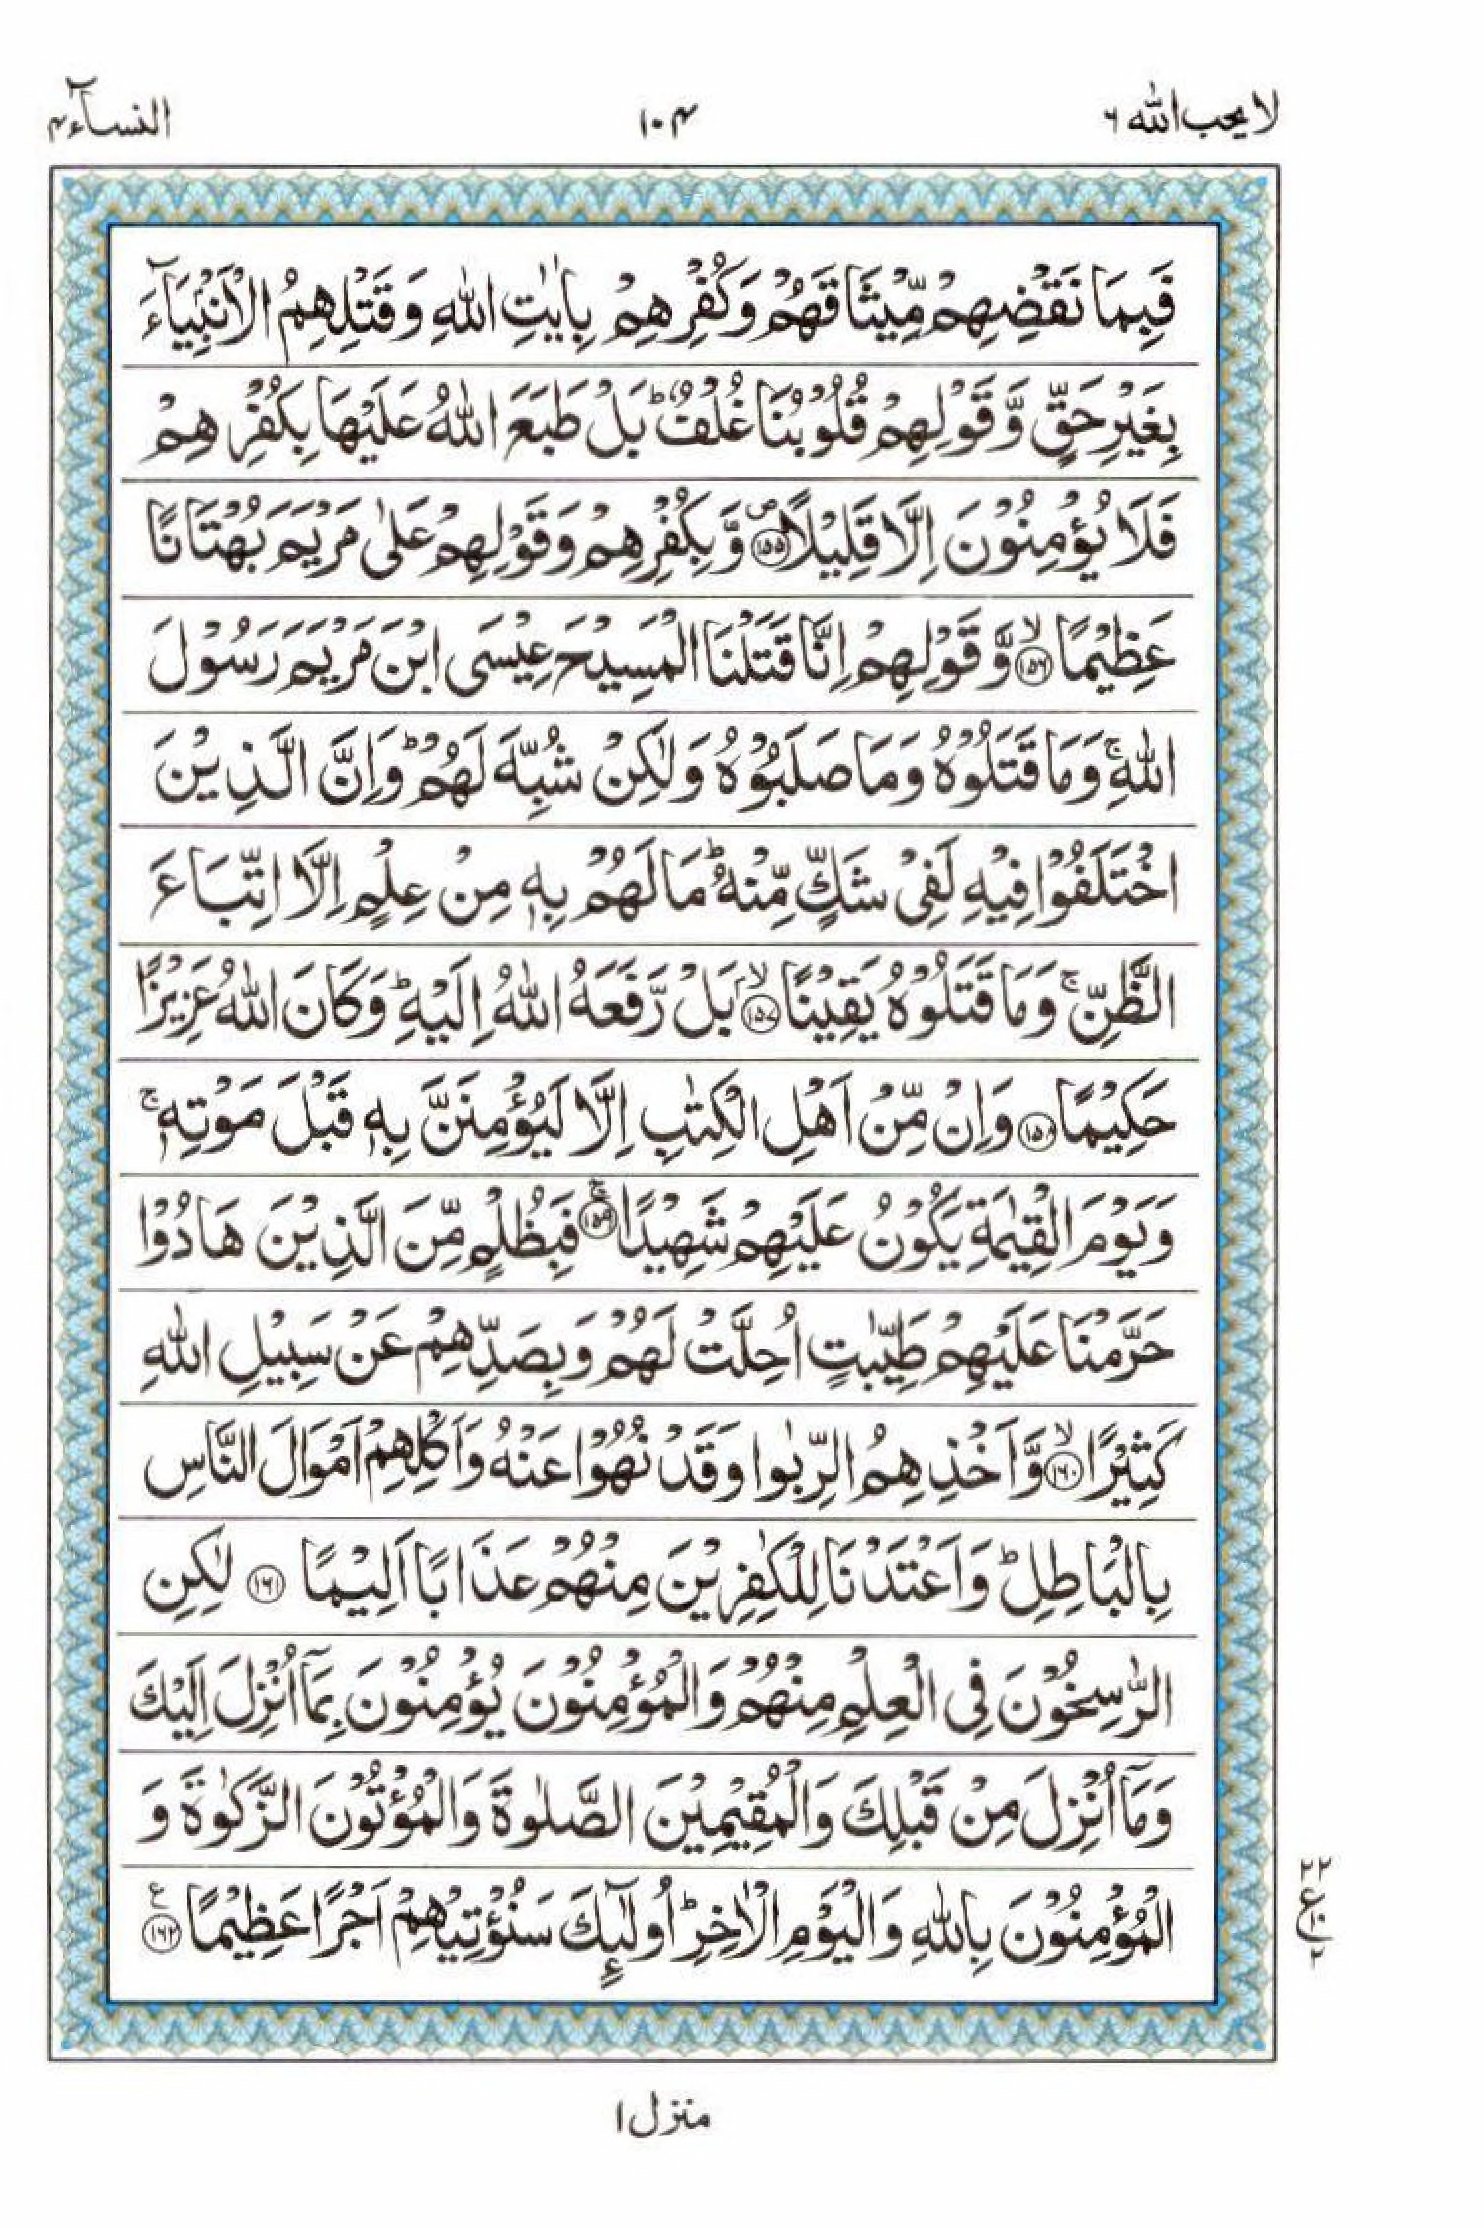 لا یحب اللہ ۶
۱۰۴
النسآء ۴
فَبِمَا نَقْضِهِمْ مِّيْثَاقَهُمْ وَكُفْرِهِمْ بِاٰيٰتِ اللهِ وَقَتْلِهِمُ الْاَنْۢبِيَآءَ
بِغَيْرِ حَقٍّ وَّقَوْلِهِمْ قُلُوْبُنَا غُلْفٌ ؕ بَلْ طَبَعَ اللهُ عَلَيْهَا بِكُفْرِهِمْ
فَلَا يُؤْمِنُوْنَ اِلَّا قَلِيْلًا ۪﴿۱۵۵﴾ وَّبِكُفْرِهِمْ وَقَوْلِهِمْ عَلٰى مَرْيَمَ بُهْتَانًا
عَظِيْمًا ۙ﴿۱۵۶﴾ وَّقَوْلِهِمْ اِنَّا قَتَلْنَا الْمَسِيْحَ عِيْسَى ابْنَ مَرْيَمَ رَسُوْلَ
اللهِ ۚ وَمَا قَتَلُوْهُ وَمَا صَلَبُوْهُ وَلٰكِنْ شُبِّهَ لَهُمْ ؕ وَاِنَّ الَّذِيْنَ
اخْتَلَفُوْا فِيْهِ لَفِيْ شَكٍّ مِّنْهُ ؕ مَا لَهُمْ بِهٖ مِنْ عِلْمٍ اِلَّا اتِّبَاعَ
الظَّنِّ ۚ وَمَا قَتَلُوْهُ يَقِيْنًۢا ۙ﴿۱۵۷﴾ بَلْ رَّفَعَهُ اللهُ اِلَيْهِ ؕ وَكَانَ اللهُ عَزِيْزًا
حَكِيْمًا ﴿۱۵۸﴾ وَاِنْ مِّنْ اَهْلِ الْكِتٰبِ اِلَّا لَيُؤْمِنَنَّ بِهٖ قَبْلَ مَوْتِهٖ ۚ
وَيَوْمَ الْقِيٰمَةِ يَكُوْنُ عَلَيْهِمْ شَهِيْدًا ۚ﴿۱۵۹﴾ فَبِظُلْمٍ مِّنَ الَّذِيْنَ هَادُوْا
حَرَّمْنَا عَلَيْهِمْ طَيِّبٰتٍ اُحِلَّتْ لَهُمْ وَبِصَدِّهِمْ عَنْ سَبِيْلِ اللهِ
كَثِيْرًا ۙ﴿۱۶۰﴾ وَّاَخْذِهِمُ الرِّبٰوا وَقَدْ نُهُوْا عَنْهُ وَاَكْلِهِمْ اَمْوَالَ النَّاسِ
بِالْبَاطِلِ ؕ وَاَعْتَدْنَا لِلْكٰفِرِيْنَ مِنْهُمْ عَذَابًا اَلِيْمًا ﴿۱۶۱﴾ لٰكِنِ
الرّٰسِخُوْنَ فِي الْعِلْمِ مِنْهُمْ وَالْمُؤْمِنُوْنَ يُؤْمِنُوْنَ بِمَاۤ اُنْزِلَ اِلَيْكَ
وَمَاۤ اُنْزِلَ مِنْ قَبْلِكَ وَالْمُقِيْمِيْنَ الصَّلٰوةَ وَالْمُؤْتُوْنَ الزَّكٰوةَ وَ
الْمُؤْمِنُوْنَ بِاللهِ وَالْيَوْمِ الْاٰخِرِ ؕ اُولٰٓئِكَ سَنُؤْتِيْهِمْ اَجْرًا عَظِيْمًا ﴿۱۶۲﴾ ع
۲۲
ع ۱۰
۲
منزل ۱